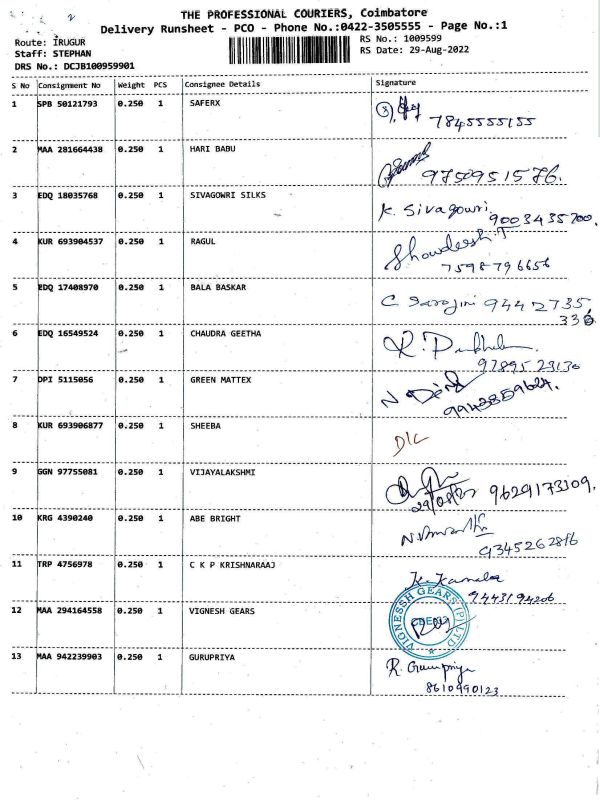 2
THE PROFESSIONAL COURIERS, Coimbatore
Delivery Runsheet - PCO - Phone No.:0422-3505555 - Page No.:1
Route: IRUGUR
RS No.: 1009599
Staff: STEPHAN
RS Date: 29-Aug-2022
DRS No.: DCJB100959901
S No Consignment No Weight PCS Consignee Details Signature
1 SPB 50121793 0.250 1 SAFERX
7845555155
2 MAA 281664438 0.250 1 HARI BABU
9750951576.
3 EDQ 18035768 0.250 1 SIVAGOWRI SILKS
K. Sivagowri
9003435700.
4 KUR 693904537 0.250 1 RAGUL
7598796656
5 EDQ 17408970 0.250 1 BALA BASKAR
C Sarojini 9442735,
336
6 EDQ 16549524 0.250 1 CHAUDRA GEETHA
9789523130
7 DPI 5115056 0.250 1 GREEN MATTEX
9942859624.
8 KUR 693906877 0.250 1 SHEEBA
D/L
9 GGN 97755081 0.250 1 VIJAYALAKSHMI
29/08/22 9629173109.
10 KRG 4390240 0.250 1 ABE BRIGHT
9345262816
11 TRP 4756978 0.250 1 C K P KRISHNARAAJ
K. Kamala
9443194206
12 MAA 294164558 0.250 1 VIGNESH GEARS
VIGNESSH GEARS (P) LTD
13 MAA 942239903 0.250 1 GURUPRIYA
R. Gurupriya
8610990123